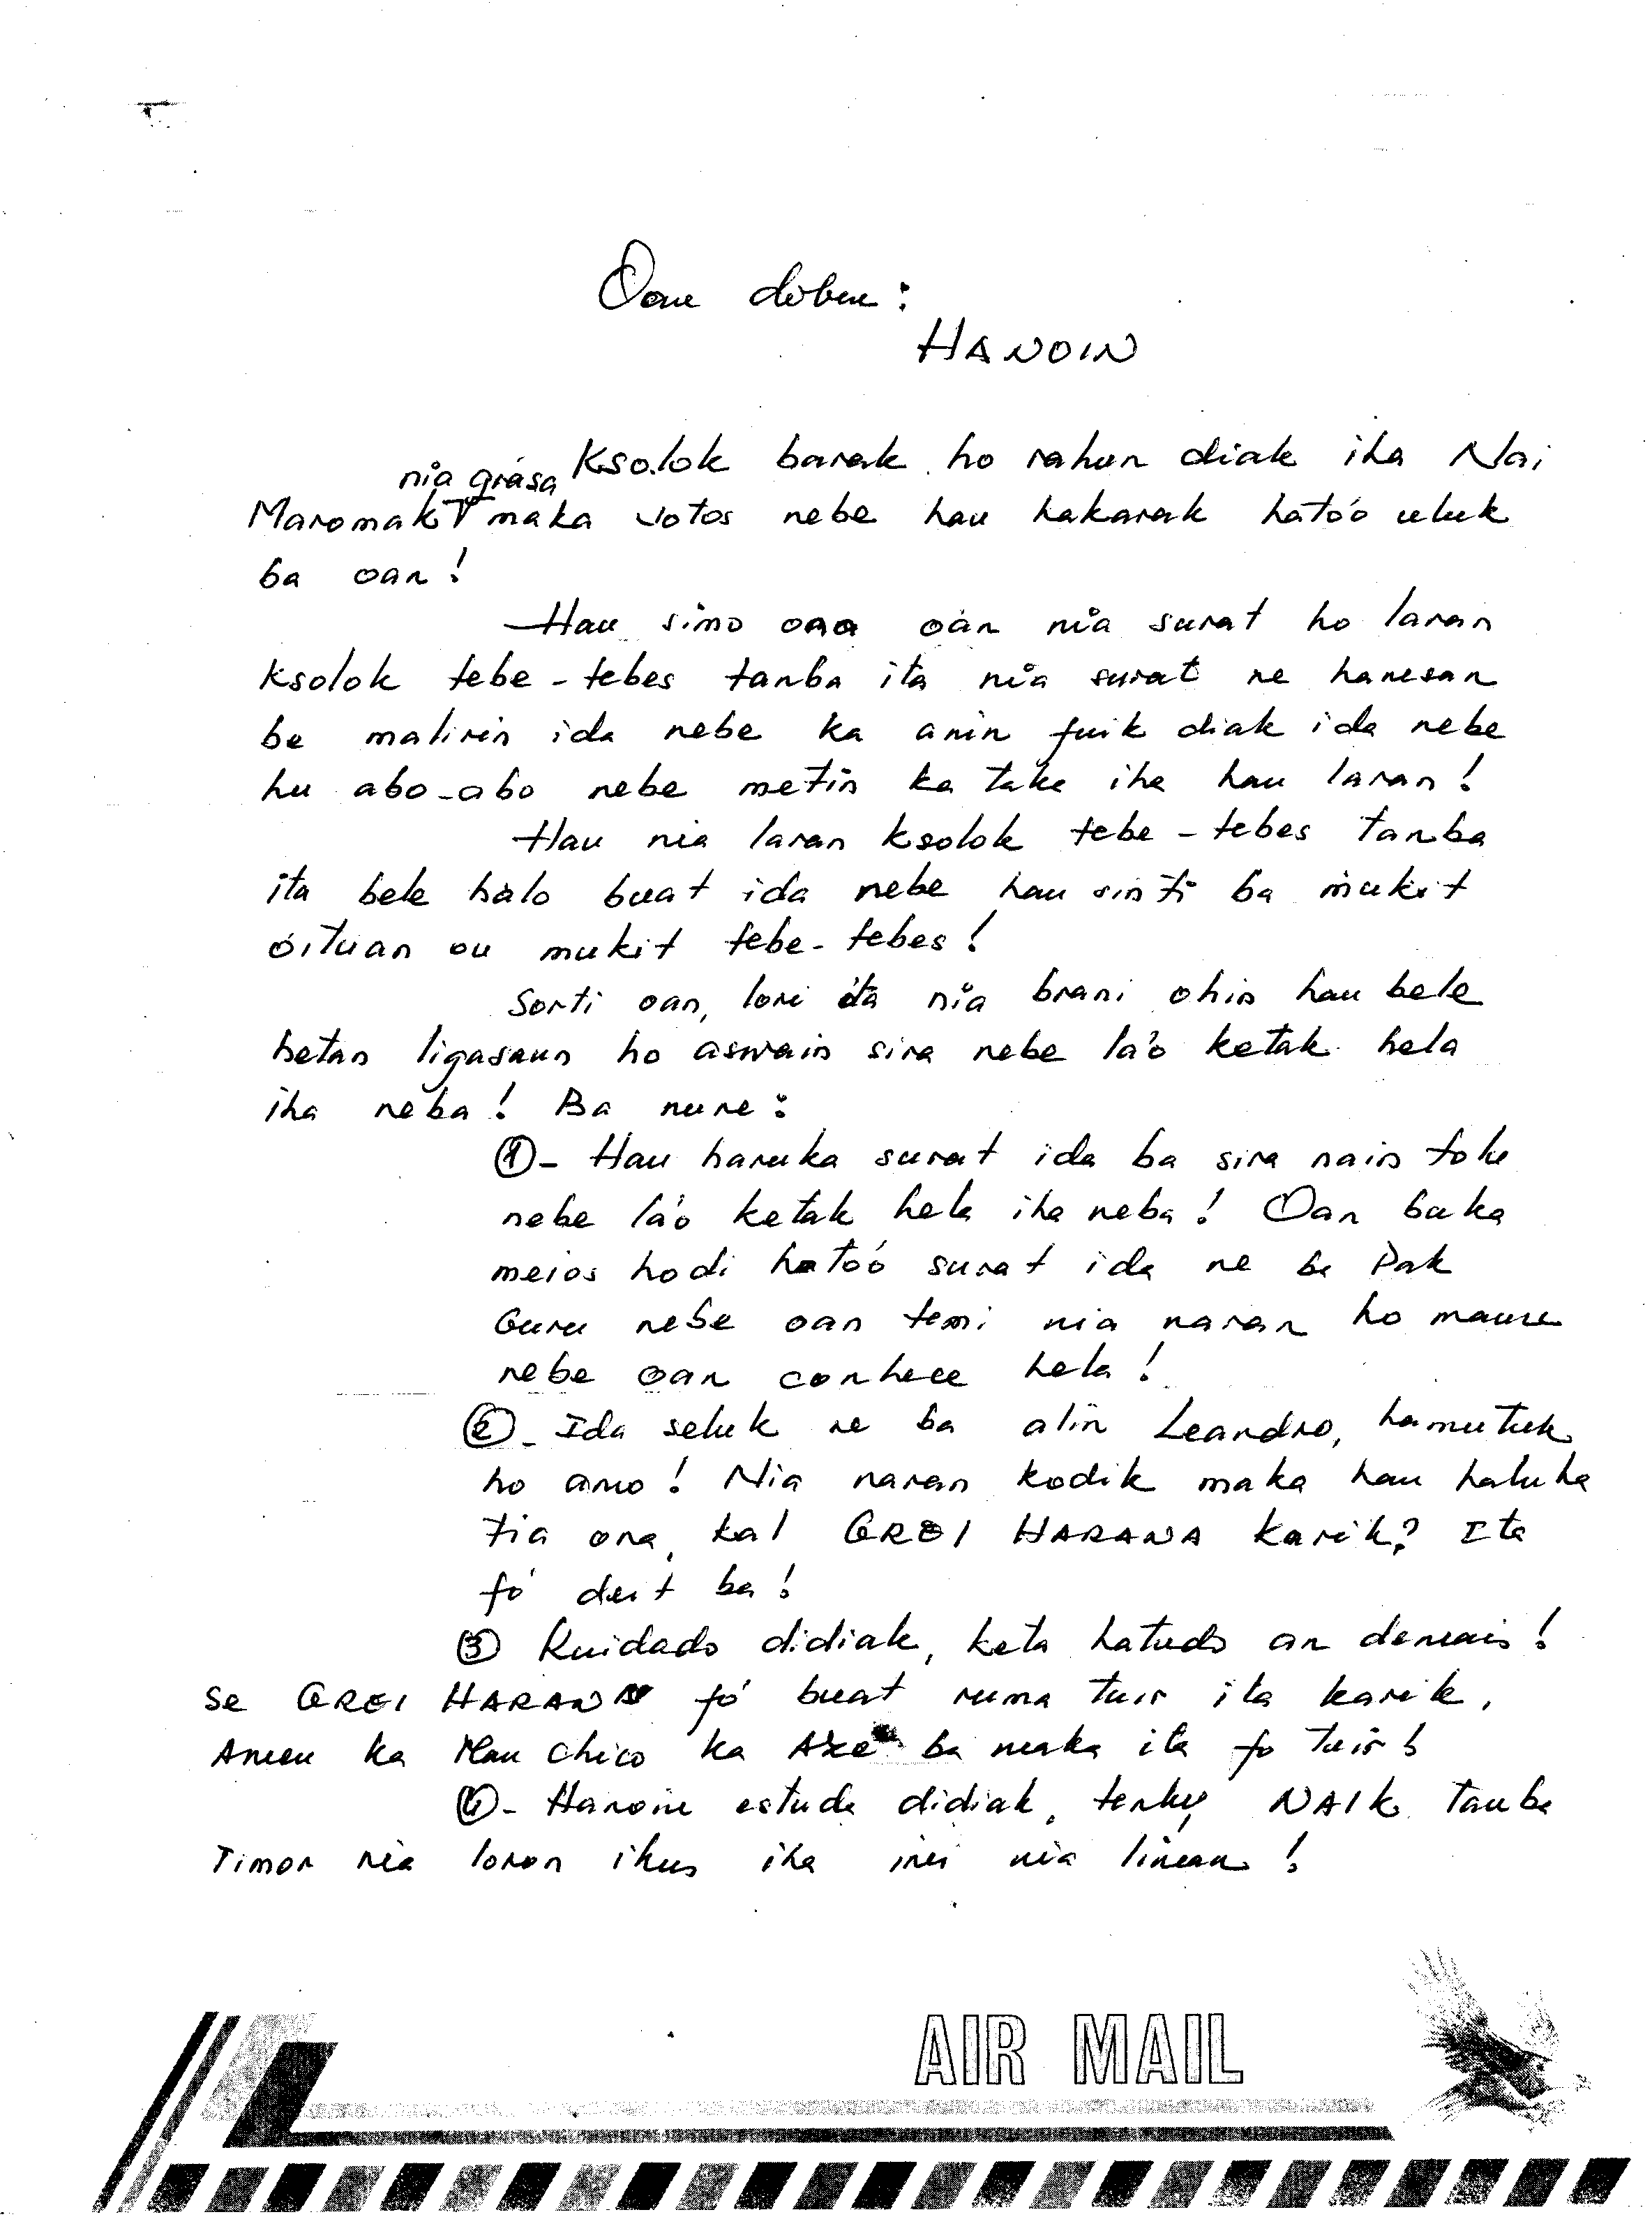 Oan doben:
HANOIN
Ksolok barak ho rahun diak iha Nai
nia grasa
Maromak maka votos nebe hau hakarak ható'o uluk
ba oan!
Hau simo ona oan nia surat ho laran
ksolok tebe-tebes tanba ita nia surat ne hanesan
be malirin ida nebe ka anin fuik diak ida nebe
hu abo-abo nebe metin ka taka iha hau laran!
Hau nia laran ksolok tebe-tebes tanba
ita bele halo buat ida nebe hau sinti ba mukit
óituan ou mukit tebe-tebes!
Sorti oan, lori ita nia brani ohin hau bele
hetan ligasaun ho aswain sira nebe la'o ketak hela
iha neba! Ba nune:
① - Hau haruka surat ida ba sira nain tolu
nebe la'o ketak hela iha neba! Oan buka
meios hodi ható'o surat ida ne ba Pak
Guru nebe oan temi nia naran ho maune
nebe oan conhece hela!
② - Ida seluk ne ba alin Leandro, hamutuk
ho amo! Nia naran kodik maka hau haluha
tia ona, kal GREI HARANA karik? Ita
fó deit ba!
③ Kuidado didiak, keta hatudo an demais!
Se GREI HARANA fó buat ruma tuir ita karik,
Ameu ka Mau Chico ka ba maka ita fo tuir!
④ - Hanoin estuda didiak, NAIK tanba
Timor nia loron ikus iha imi nia liman!
AIR MAIL